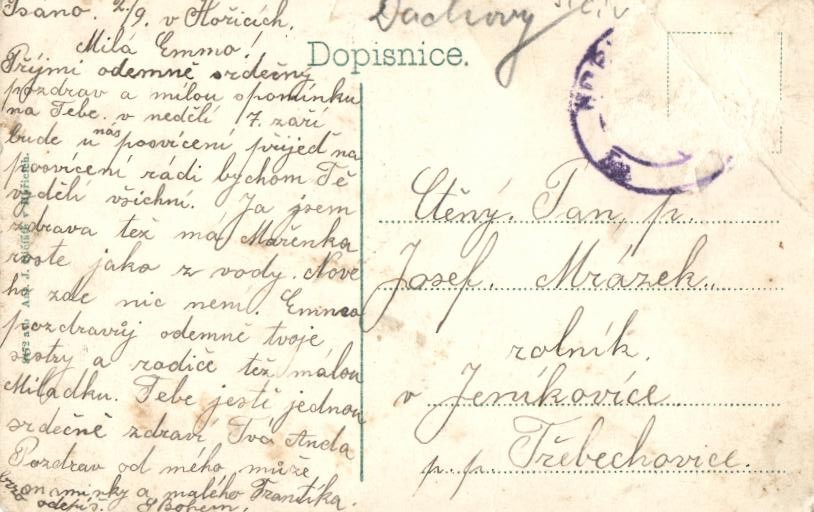 Psáno. 2/9. v Hořicích.
Milá Emmo!
Přijmi odemně srdečný
pozdrav a milou spomínku
na Tebe. v neděli 7. září
bude u nás posvícení přijeď na
posvícení rádi bychom Tě
viděli všichni. Ja jsem
zdrava též má Mařenka
roste jako z vody. Nové
ho zde nic není. Emmo
pozdravůj odemně tvoje
sestry a rodiče též málou
Miladku. Tebe jestě jednou
srdečně zdraví Tvá Anda
Pozdrav od mého muže
a malého Frantíka.
brzo odepiš. S Bohem.
Dachovy
Dopisnice.
Ctěný. Pan, p.
Josef. Mrázek.
rolník.
v Jeníkovíce.
p. p. Třebechovice.